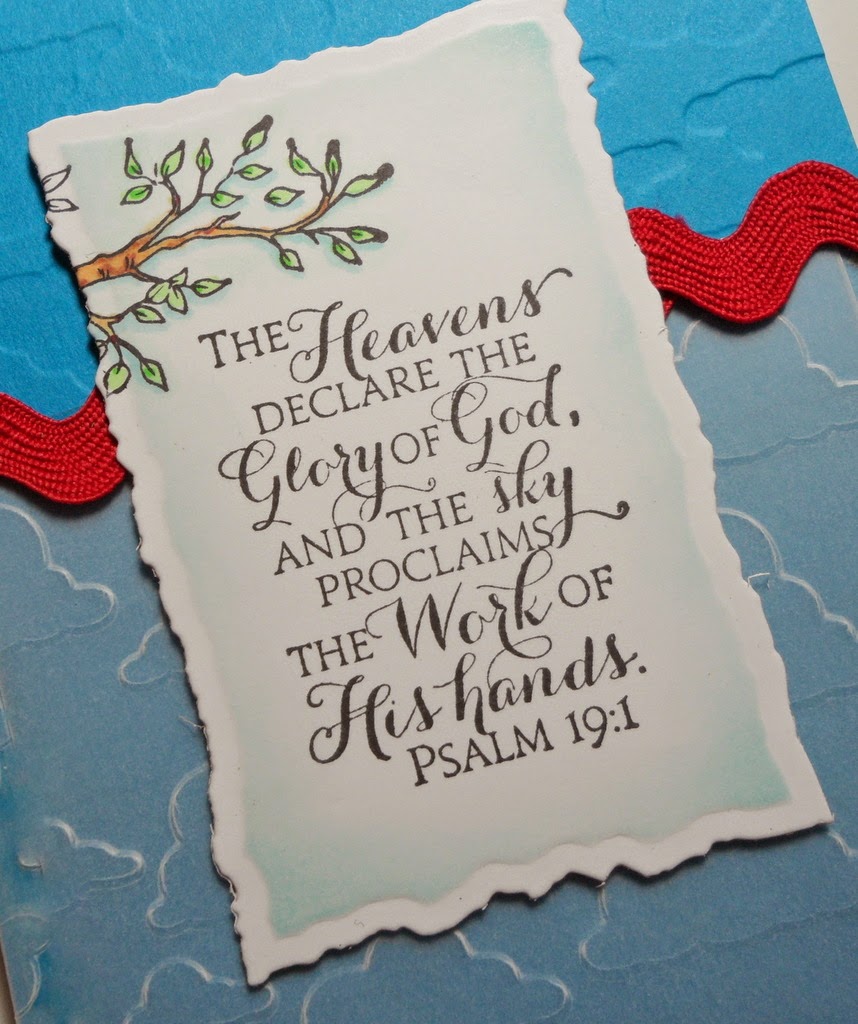 The Heavens
declare the
Glory of God,
and the sky
proclaims
the Work of
His hands.
Psalm 19:1